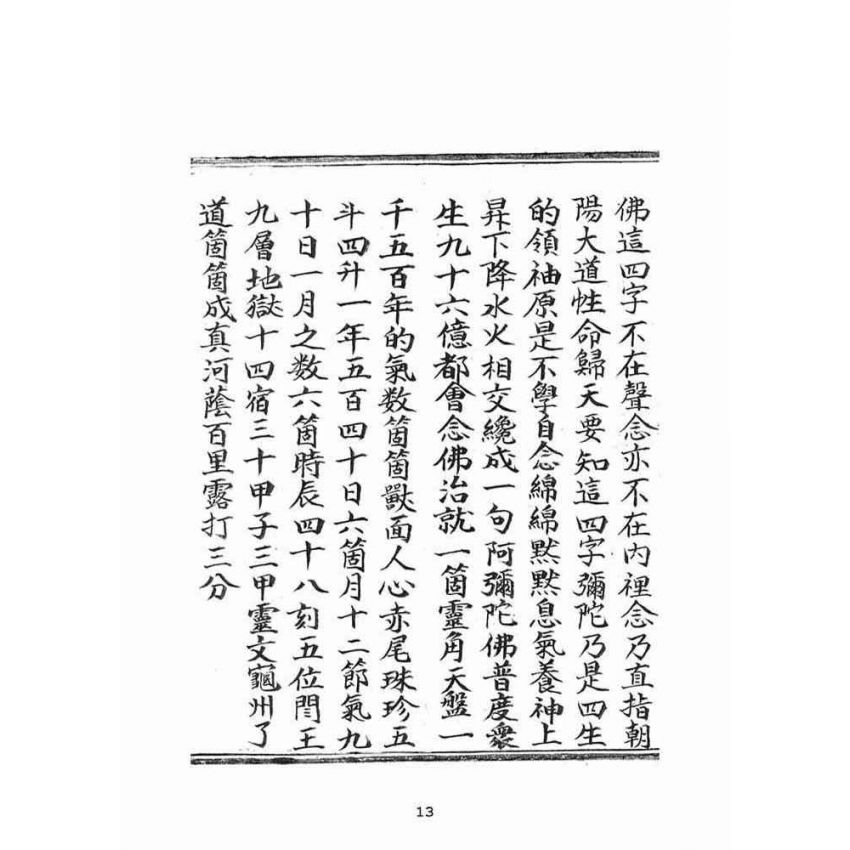 佛這四字不在聲念亦不在內裡念乃直指朝
陽大道性命歸天要知這四字彌陀乃是四生
的領袖原是不學自念綿綿默默息氣養神上
昇下降水火相交纔成一句阿彌陀佛普度衆
生九十六億都會念佛治就一箇靈角天盤一
千五百年的氣数箇箇獸面人心赤尾珠珍五
斗四升一年五百四十日六箇月十二節氣九
十日一月之数六箇時辰四十八刻五位閆王
九層地獄十四宿三十甲子三甲靈文龜州了
道箇箇成真河蔭百里露打三分
13